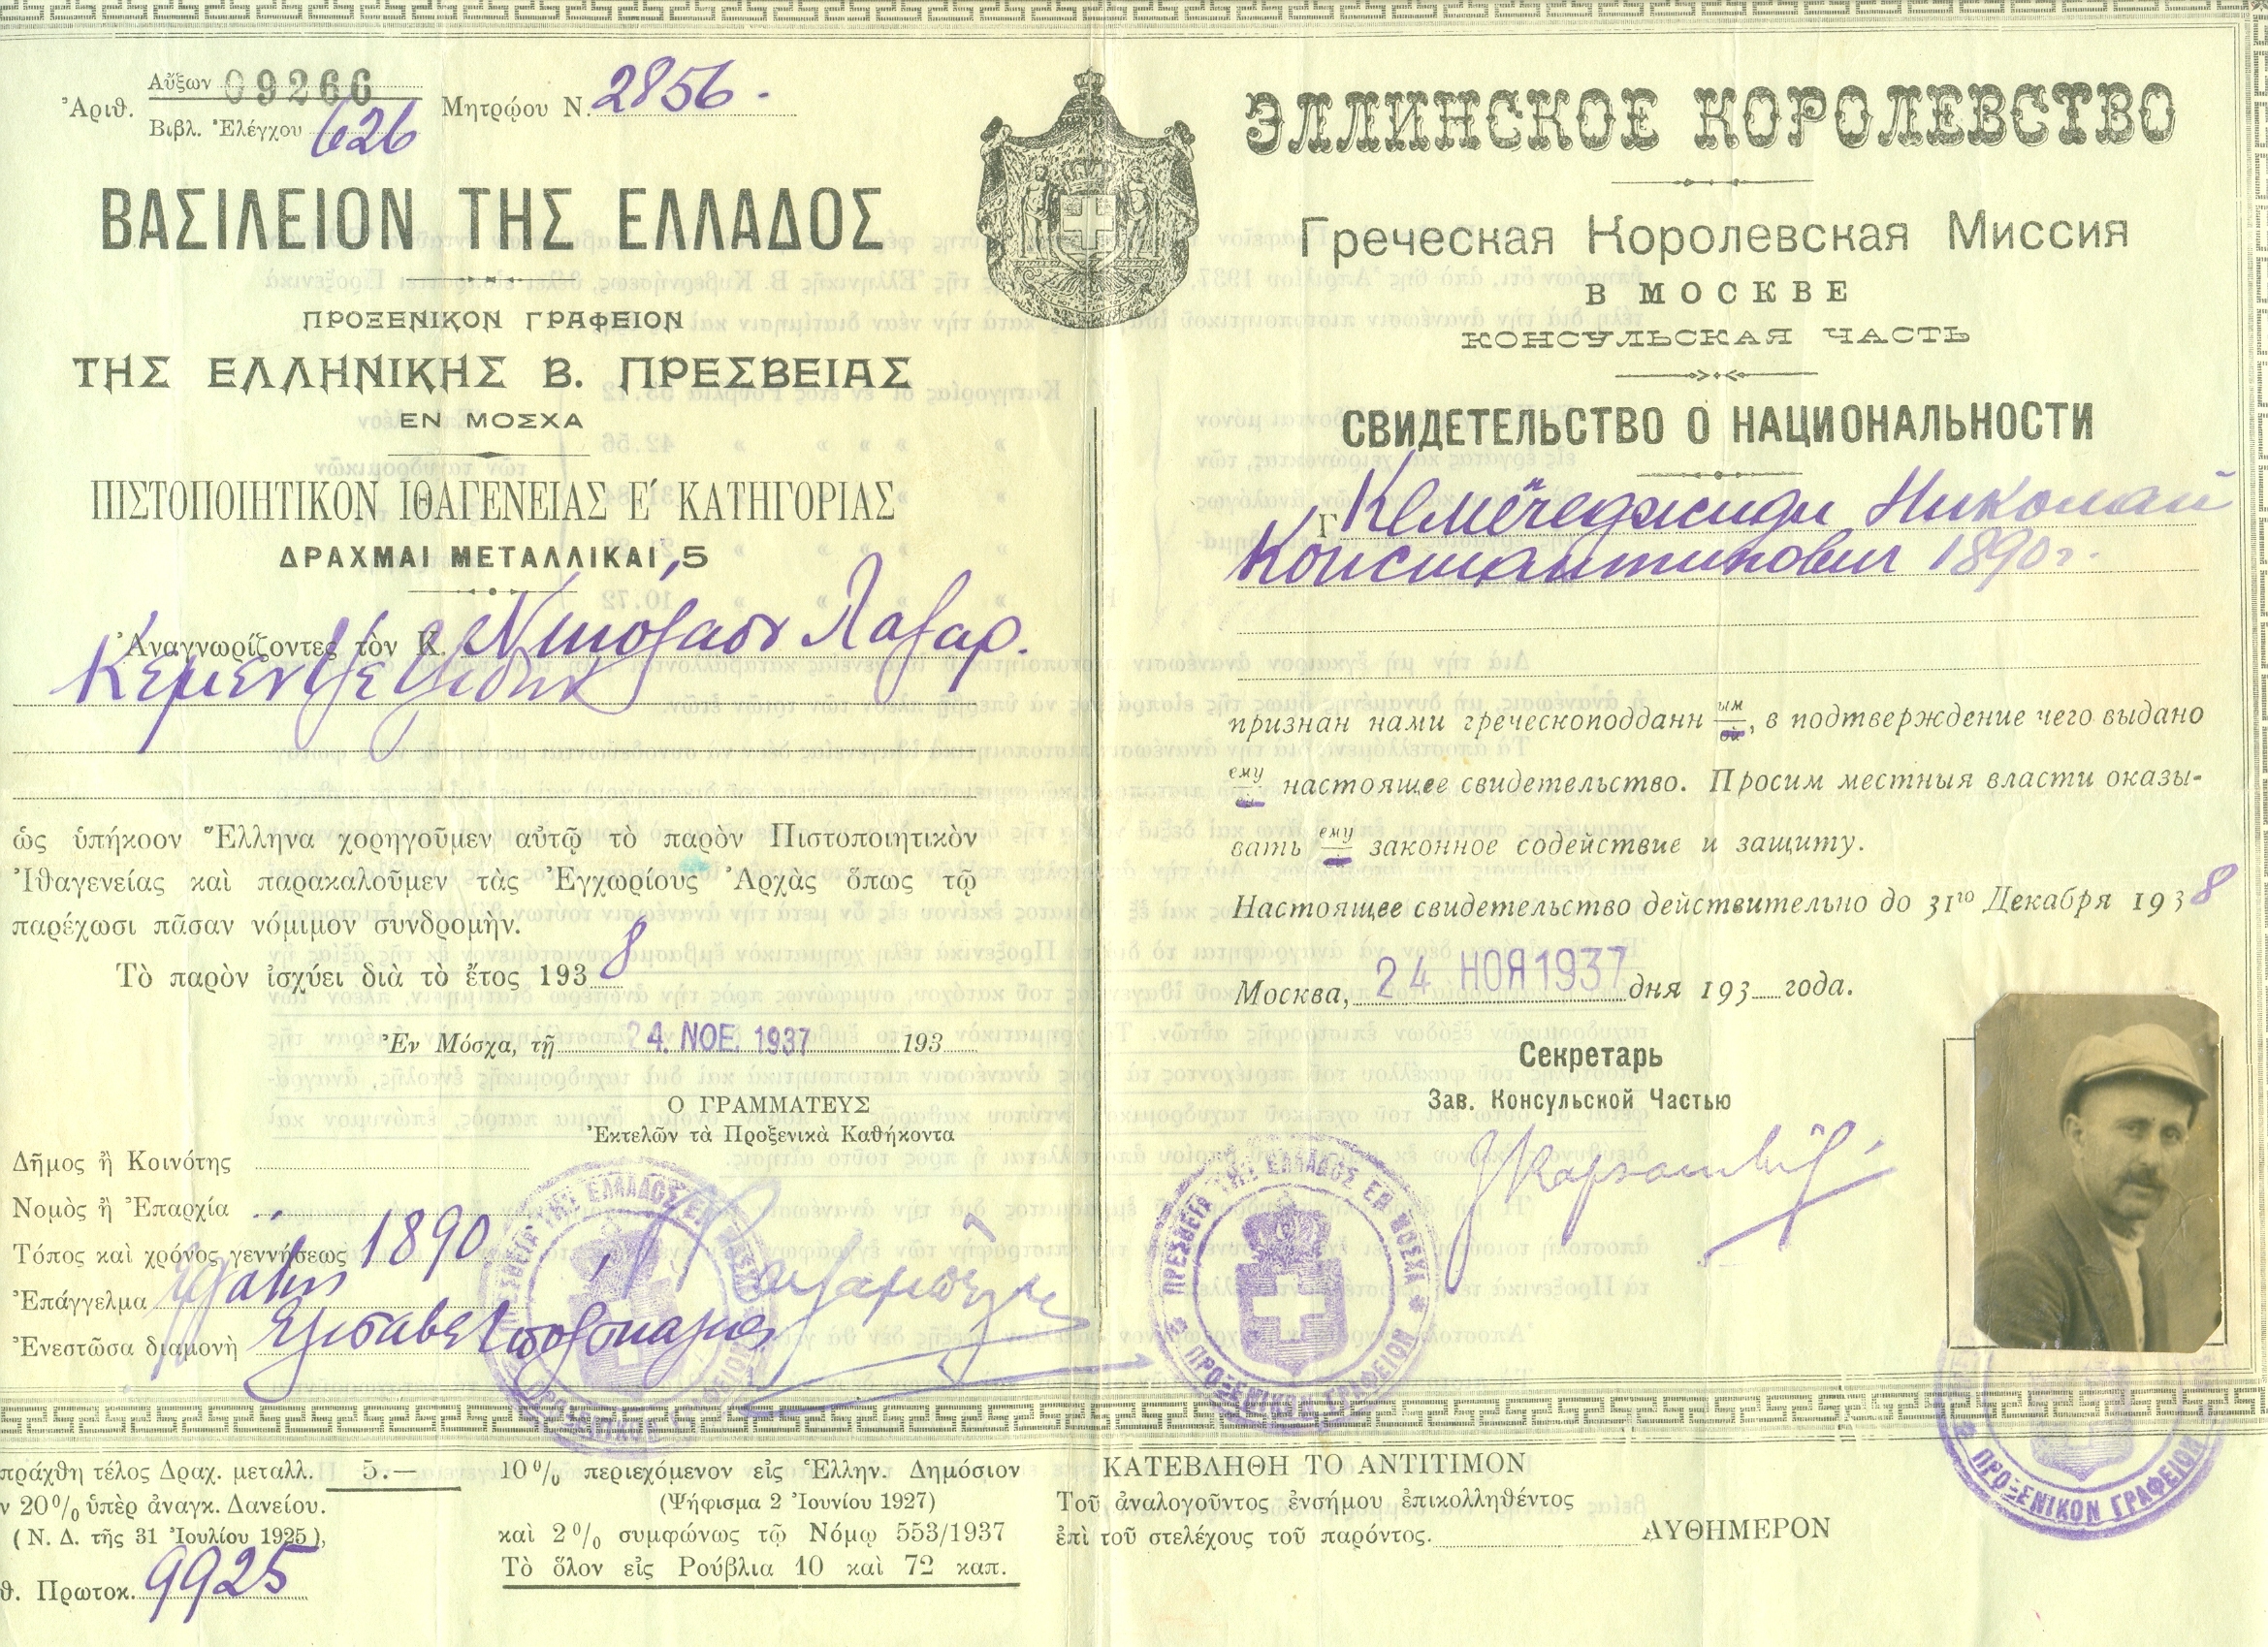 Ἀριθ. Αὔξων 09266
Βιβλ. Ἐλέγχου 626
Μητρῴου Ν. 2856.
ΒΑΣΙΛΕΙΟΝ ΤΗΣ ΕΛΛΑΔΟΣ
ΠΡΟΞΕΝΙΚΟΝ ΓΡΑΦΕΙΟΝ
ΤΗΣ ΕΛΛΗΝΙΚΗΣ Β. ΠΡΕΣΒΕΙΑΣ
ΕΝ ΜΟΣΧΑ
ΠΙΣΤΟΠΟΙΗΤΙΚΟΝ ΙΘΑΓΕΝΕΙΑΣ Ε΄ ΚΑΤΗΓΟΡΙΑΣ
ΔΡΑΧΜΑΙ ΜΕΤΑΛΛΙΚΑΙ 5
Ἀναγνωρίζοντες τὸν Κ. Νικόλαον Λαζαρ.
Κεμεντζετζίδην
ὡς ὑπήκοον Ἕλληνα χορηγοῦμεν αὐτῷ τὸ παρὸν Πιστοποιητικὸν
Ἰθαγενείας καὶ παρακαλοῦμεν τὰς Ἐγχωρίους Ἀρχὰς ὅπως τῷ
παρέχωσι πᾶσαν νόμιμον συνδρομήν.
Τὸ παρὸν ἰσχύει διὰ τὸ ἔτος 1938
Ἐν Μόσχα, τῇ 24. ΝΟΕ. 1937 193
Ο ΓΡΑΜΜΑΤΕΥΣ
Ἐκτελῶν τὰ Προξενικὰ Καθήκοντα
Δῆμος ἢ Κοινότης
Νομὸς ἢ Ἐπαρχία
Τόπος καὶ χρόνος γεννήσεως 1890
Ἐπάγγελμα
Ἐνεστῶσα διαμονὴ
ΠΡΕΣΒΕΙΑ ΤΗΣ ΕΛΛΑΔΟΣ ΕΝ ΜΟΣΧΑ
ΠΡΟΞΕΝΙΚΟΝ ΓΡΑΦΕΙΟΝ
ЭЛЛИНСКОЕ КОРОЛЕВСТВО
Греческая Королевская Миссия
В МОСКВЕ
КОНСУЛЬСКАЯ ЧАСТЬ
СВИДЕТЕЛЬСТВО О НАЦИОНАЛЬНОСТИ
Г. Кемечеджиди Николай
Константинович 1890 г.
признан нами греческоподданн ым, в подтверждение чего выдано
ему настоящее свидетельство. Просим местныя власти оказы-
вать ему законное содействие и защиту.
Настоящее свидетельство действительно до 31го Декабря 1938
Москва, 24 НОЯ 1937 дня 193 года.
Секретарь
Зав. Консульской Частью
ΠΡΕΣΒΕΙΑ ΤΗΣ ΕΛΛΑΔΟΣ ΕΝ ΜΟΣΧΑ
ΠΡΟΞΕΝΙΚΟΝ ΓΡΑΦΕΙΟΝ
ΠΡΟΞΕΝΙΚΟΝ ΓΡΑΦΕΙΟΝ
πράχθη τέλος Δραχ. μεταλλ. 5.—
ν 20% ὑπὲρ ἀναγκ. Δανείου.
(Ν. Δ. τῆς 31 Ἰουλίου 1925),
θ. Πρωτοκ. 9925
10% περιεχόμενον εἰς Ἑλλην. Δημόσιον
(Ψήφισμα 2 Ἰουνίου 1927)
καὶ 2% συμφώνως τῷ Νόμῳ 553/1937
Τὸ ὅλον εἰς Ρούβλια 10 καὶ 72 καπ.
ΚΑΤΕΒΛΗΘΗ ΤΟ ΑΝΤΙΤΙΜΟΝ
Τοῦ ἀναλογοῦντος ἐνσήμου ἐπικολληθέντος
ἐπὶ τοῦ στελέχους τοῦ παρόντος. ΑΥΘΗΜΕΡΟΝ